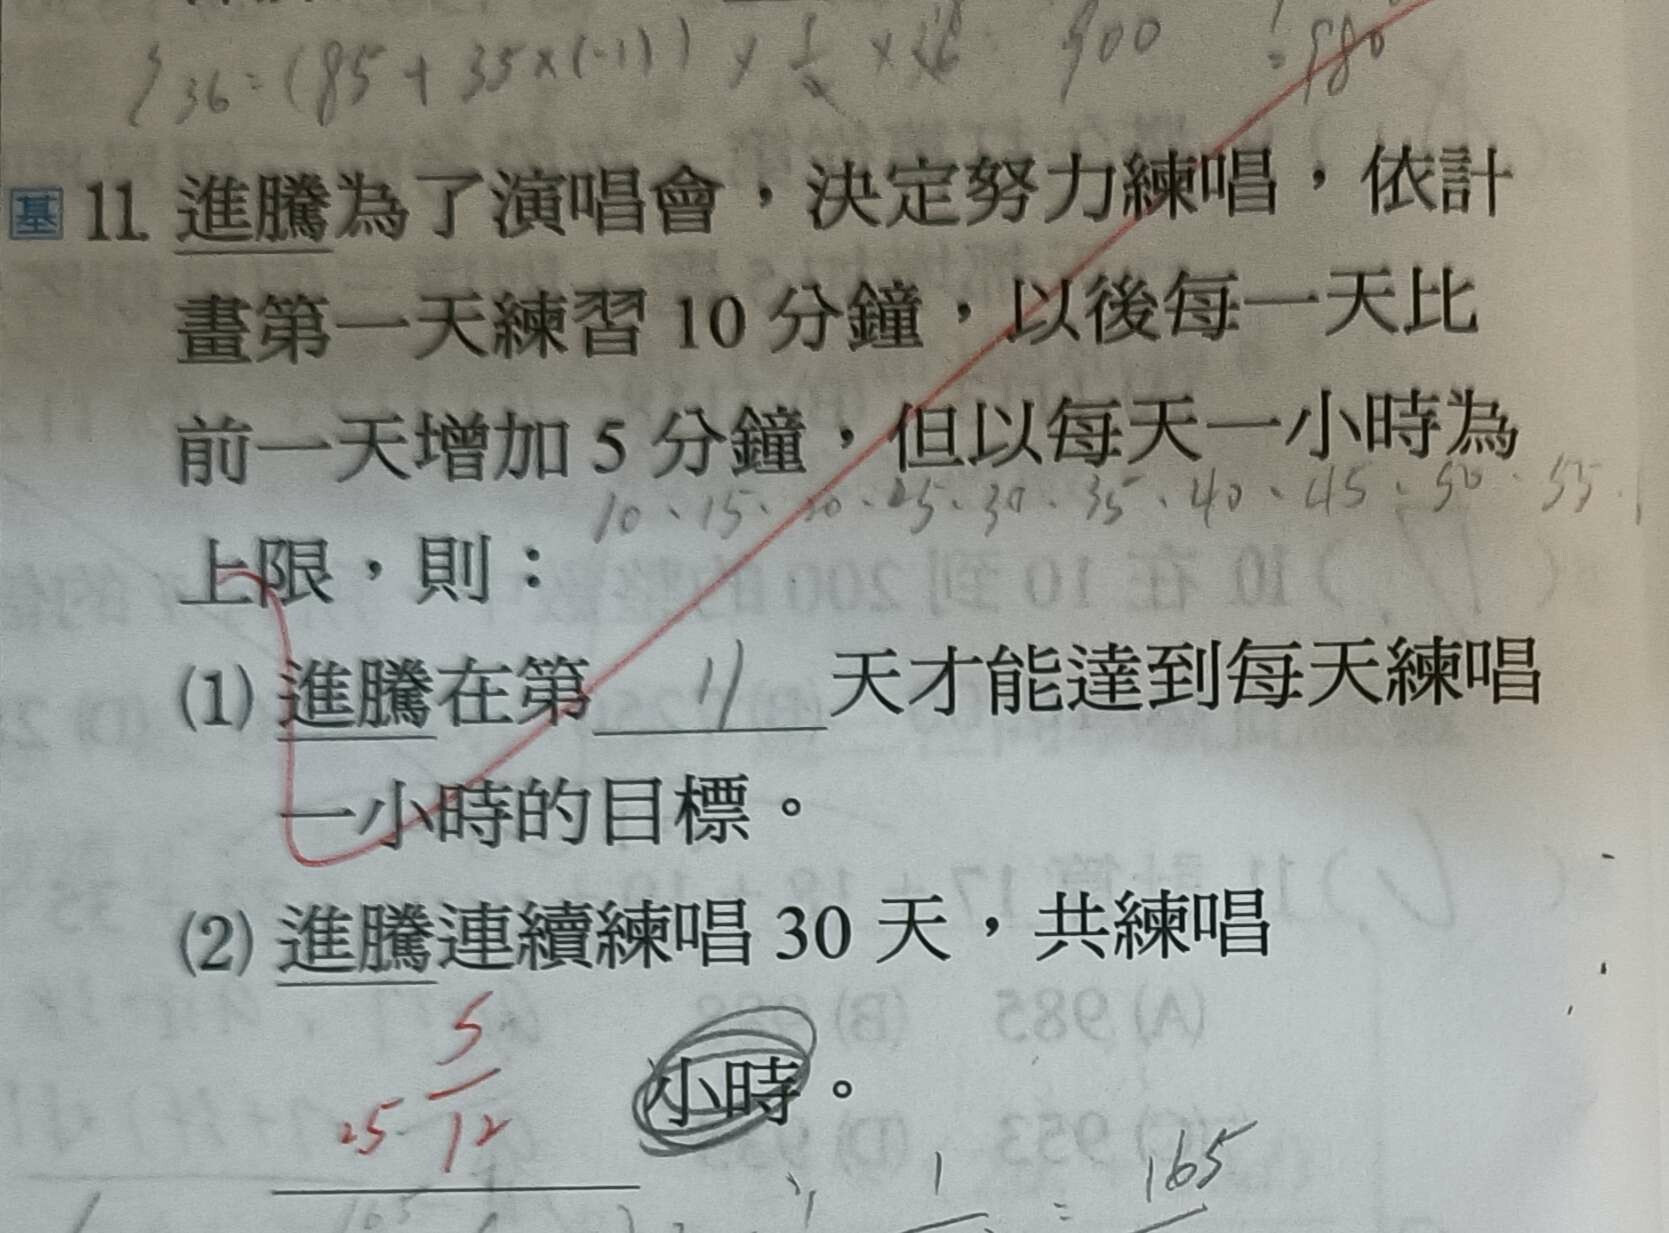 36 = (85 + 35 × (-1)) × 900 980
基 11. 進騰為了演唱會，決定努力練唱，依計
畫第一天練習 10 分鐘，以後每一天比
前一天增加 5 分鐘，但以每天一小時為
10、15、20、25、30、35、40、45、50、55、
上限，則：
(1) 進騰在第 11 天才能達到每天練唱
一小時的目標。
(2) 進騰連續練唱 30 天，共練唱
25 5/12 小時。
165